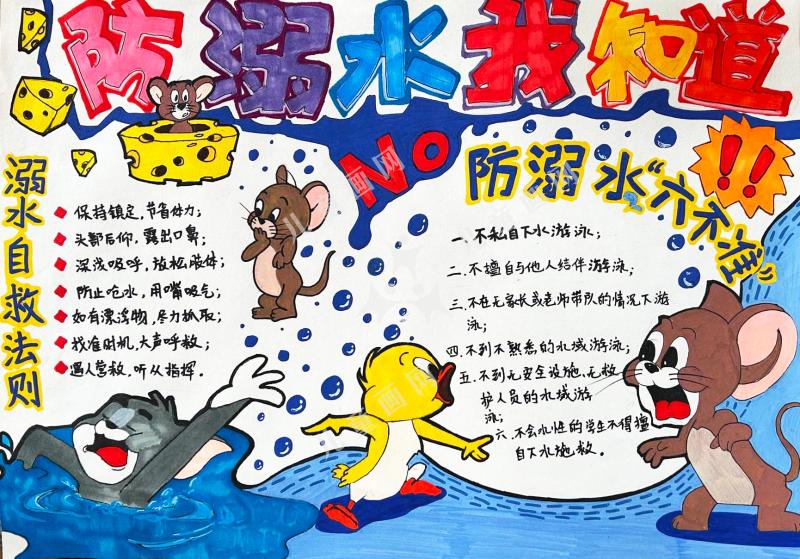 防溺水我知道
No
溺水自救法则
保持镇定,节省体力;
头部后仰,露出口鼻;
深浅吸呼,放松肢体;
防止呛水,用嘴吸气;
如有漂浮物,尽力抓取;
找准时机,大声呼救;
遇人营救,听从指挥.
防溺水“六不准”
!!
一、不私自下水游泳;
二、不擅自与他人结伴游泳;
三、不在无家长或老师带队的情况下游
泳;
四、不到不熟悉的水域游泳;
五、不到无安全设施、无救
护人员的水域游
泳;
六、不会水性的学生不得擅
自下水施救。
儿童画网